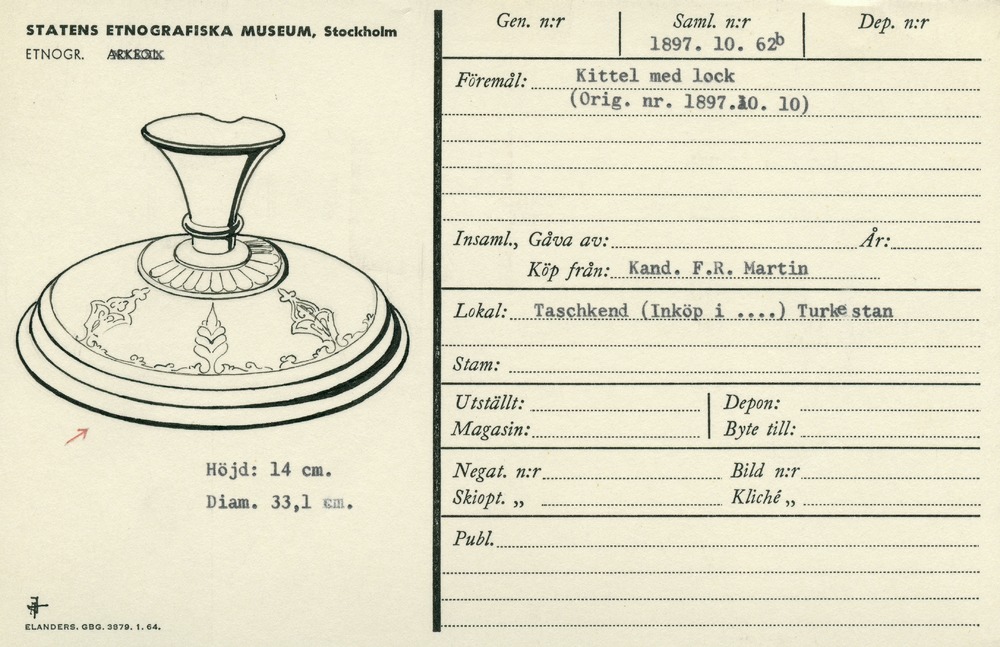 STATENS ETNOGRAFISKA MUSEUM, Stockholm
ETNOGR. ARKEOL.
Höjd: 14 cm.
Diam. 33,1 cm.
ELANDERS. GBG. 3879. 1. 64.
Gen. n:r
Saml. n:r
1897. 10. 62b
Dep. n:r
Föremål: Kittel med lock
(Orig. nr. 1897.10. 10)
Insaml., Gåva av: År:
Köp från: Kand. F.R. Martin
Lokal: Taschkend (Inköp i ....) Turkestan
Stam:
Utställt: Depon:
Magasin: Byte till:
Negat. n:r Bild n:r
Skiopt. „ Kliché „
Publ.